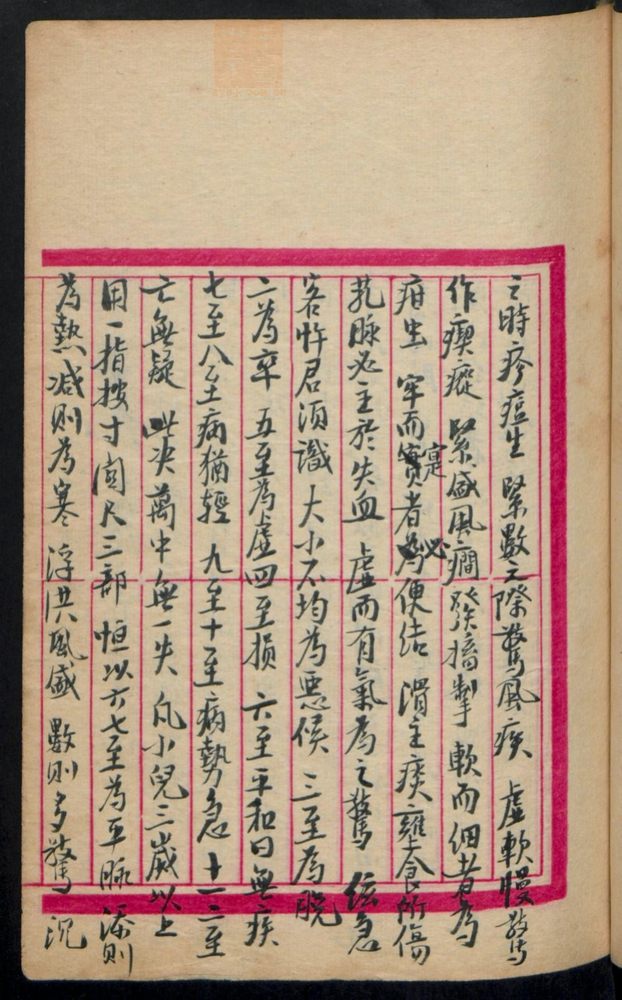 之時疹痘生 緊數之際驚風疾 虛軟慢驚
作瘈瘲 緊盛風癇發搐掣 軟而細者為
疳虫 牢而實寔者為必便结 滑主痰壅食所傷
芤脉必主於失血 虛而有氣為之驚 弦急
客忤君須識 大小不均為惡候 三至為脱
二為卒 五至為虛四至损 六至平和曰無疾
七至八至病猶輕 九至十至病勢急 十一二至
亡無疑 此决萬中無一失 凡小兒三歲以上
用一指按寸関尺三部 恒以六七至為平脉 添則
為熱减則為寒 浮洪風盛 數則多驚 沉